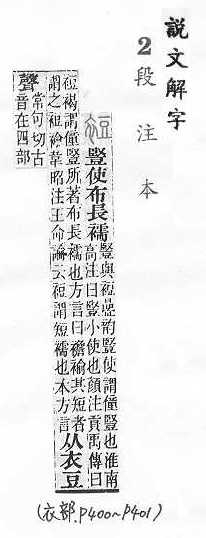 説文解字
2段注本
裋 豎使布長襦
豎與裋疊韵豎使謂僮豎也淮南
高注曰豎小使也顏注貢禹傳曰
裋褐謂僮豎所著布長襦也方言曰襜褕其短者
謂之裋褕韋昭注王命論云裋謂短襦也本方言
从衣豆
聲
常句切古
音在四部
(衣部.P400~P401)